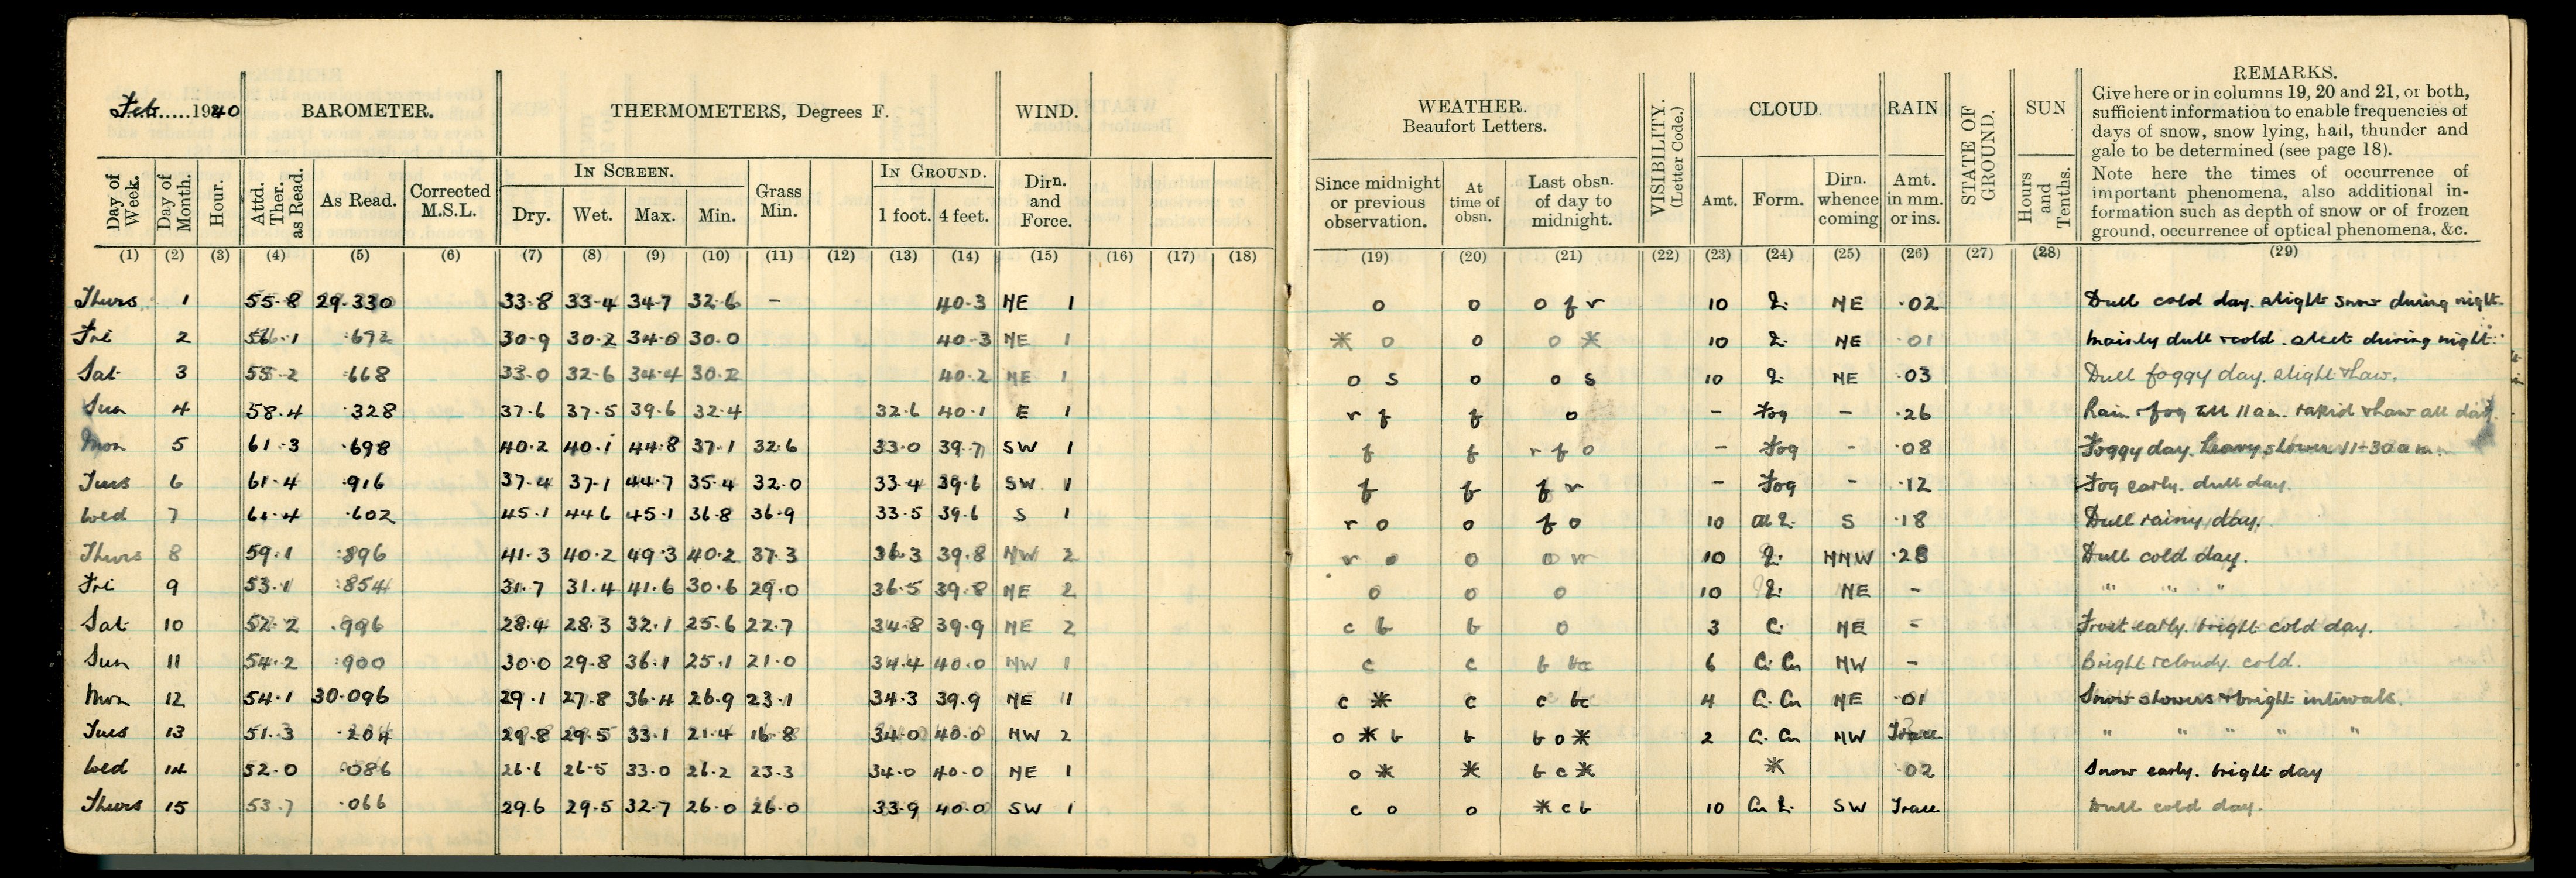 Feb.....1940
BAROMETER.
THERMOMETERS, Degrees F.
WIND.
WEATHER.
Beaufort Letters.
VISIBILITY.
(Letter Code.)
CLOUD.
RAIN
STATE OF
GROUND.
SUN
REMARKS.
Give here or in columns 19, 20 and 21, or both,
sufficient information to enable frequencies of
days of snow, snow lying, hail, thunder and
gale to be determined (see page 18).
Note here the times of occurrence of
important phenomena, also additional in-
formation such as depth of snow or of frozen
ground, occurrence of optical phenomena, &c.
Day of Week. Day of Month. Hour. Attd. Ther. as Read. As Read. Corrected M.S.L.
IN SCREEN. Dry. Wet. Max. Min. Grass Min. IN GROUND. 1 foot. 4 feet. Dirn. and Force.
Since midnight or previous observation. At time of obsn. Last obsn. of day to midnight. Amt. Form. Dirn. whence coming Amt. in mm. or ins. Hours and Tenths.
(1) (2) (3) (4) (5) (6) (7) (8) (9) (10) (11) (12) (13) (14) (15) (16) (17) (18) (19) (20) (21) (22) (23) (24) (25) (26) (27) (28) (29)
Thurs 1 55.8 29.330 33.8 33.4 34.7 32.6 - 40.3 NE 1 o o o f r 10 NE .02 Dull cold day. slight snow during night.
Fri 2 56.1 .672 30.9 30.2 34.0 30.0 40.3 NE 1 * o o o * 10 NE .01 Mainly dull & cold. sleet during night.
Sat 3 55.2 .668 33.0 32.6 34.4 30.2 40.2 NE 1 o s o o s 10 NE .03 Dull foggy day. slight thaw.
Sun 4 58.4 .328 37.6 37.5 39.6 32.4 32.6 40.1 E 1 r f f o - Fog - .26 Rain & fog till 11 am. rapid thaw all day.
Mon 5 61.3 .698 40.2 40.1 44.8 37.1 32.6 33.0 39.7 SW 1 f f r f o - Fog - .08 Foggy day. Heavy shower 11-30 a m.
Tues 6 61.4 .916 37.4 37.1 44.7 35.4 32.0 33.4 39.6 SW 1 f f f r - Fog - .12 Fog early. dull day.
Wed 7 61.4 .602 45.1 44.6 45.1 36.8 36.9 33.5 39.6 S 1 r o o f o 10 S .18 Dull rainy day.
Thurs 8 59.1 .896 41.3 40.2 49.3 40.2 37.3 36.3 39.8 NW 2 r o o o r 10 NNW .28 Dull cold day.
Fri 9 53.1 .854 31.7 31.4 41.6 30.6 29.0 36.5 39.8 NE 2 o o o 10 NE - " " "
Sat 10 52.2 .996 28.4 28.3 32.1 25.6 22.7 34.8 39.9 NE 2 c b b o 3 C. NE - Frost early. bright cold day.
Sun 11 54.2 .900 30.0 29.8 36.1 25.1 21.0 34.4 40.0 NW 1 c c b bc 6 C. Cu NW - Bright & cloudy. cold.
Mon 12 54.1 30.096 29.1 27.8 36.4 26.9 23.1 34.3 39.9 NE 1 c * c c bc 4 C. Cu NE .01 Snow showers & bright intervals.
Tues 13 51.3 .204 29.8 29.5 33.1 21.4 16.8 34.0 40.0 NW 2 o * b b b o * 2 C. Cu NW Trace " " " " "
Wed 14 52.0 .086 26.6 26.5 33.0 26.2 23.3 34.0 40.0 NE 1 o * * b c * * .02 Snow early. bright day
Thurs 15 53.7 .066 29.6 29.5 32.7 26.0 26.0 33.9 40.0 SW 1 c o o * c b 10 Cu SW Trace Dull cold day.